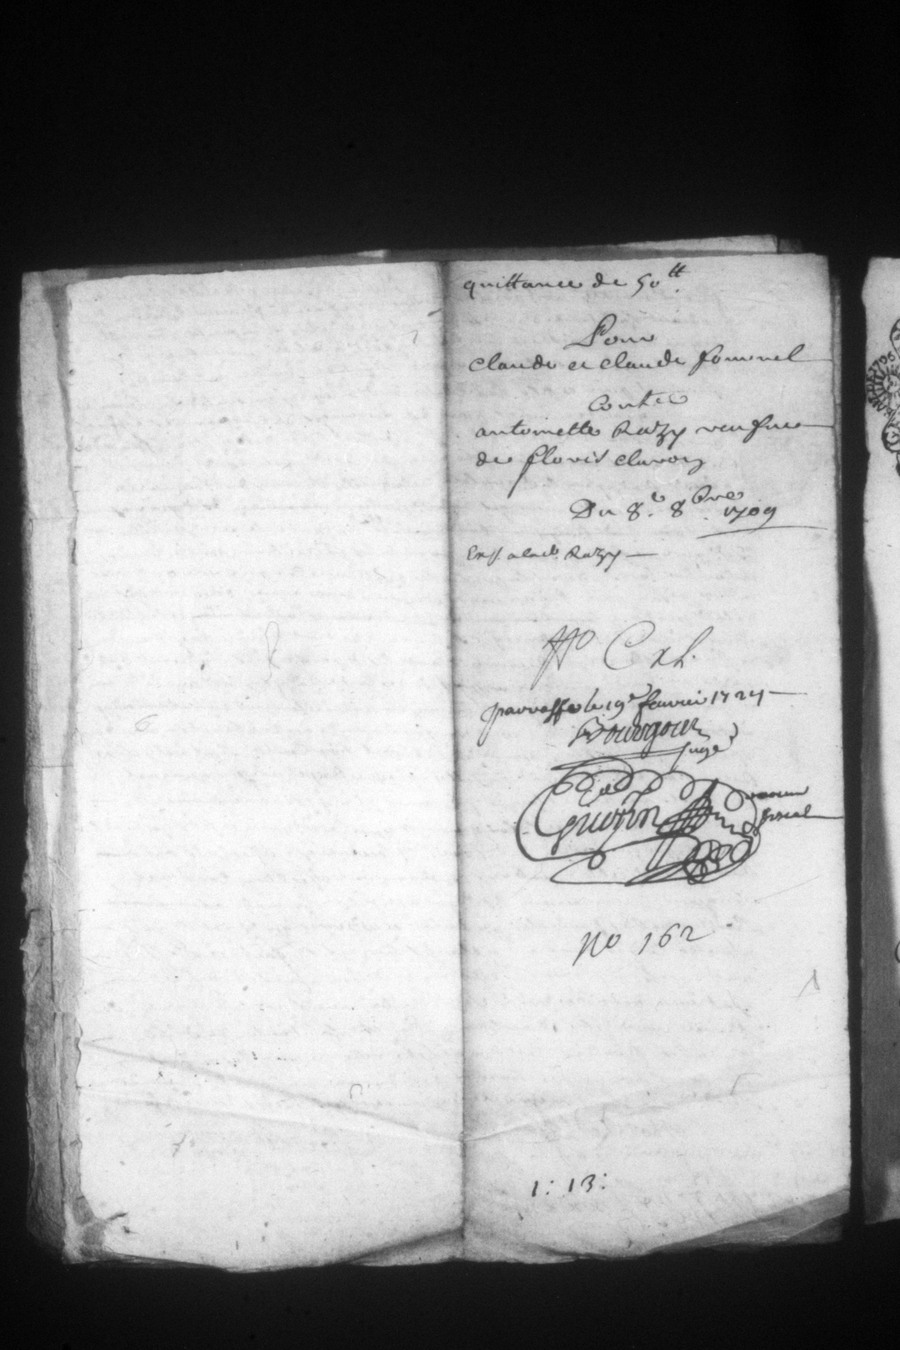 quittance de 50ᵗᵗ.
Pour
claude et claude fournel
Contre
antoinette Razy veufue
de floris clavon
Du 8ᵉ. 8ᵇʳᵉ 1709
Exp. a lade. Razy
No Cxl.
paraffé le 19ᵉ feurier 1724
Bourgouin
juge
Guerin
fiscal
No 162
1: 13: